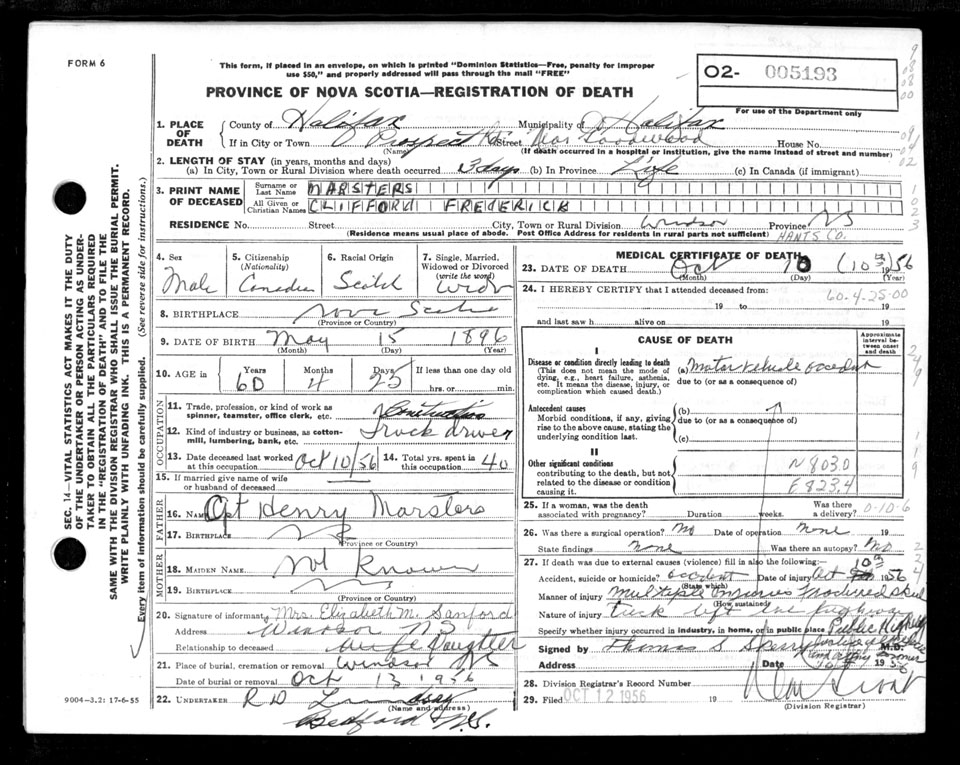 FORM 6
This form, if placed in an envelope, on which is printed "Dominion Statistics—Free, penalty for improper
use $50," and properly addressed will pass through the mail "FREE"
O2- 005193
PROVINCE OF NOVA SCOTIA—REGISTRATION OF DEATH
For use of the Department only
1. PLACE OF DEATH County of Halifax Municipality of Halifax
If in City or Town Prospect Rd Street House No.
(Name) (If death occurred in a hospital or institution, give the name instead of street and number)
2. LENGTH OF STAY (in years, months and days)
(a) In City, Town or Rural Division where death occurred 3 days (b) In Province Life (c) In Canada (if immigrant)
3. PRINT NAME OF DECEASED Surname or Last Name MARSTERS
All Given or Christian Names CLIFFORD FREDERICK
RESIDENCE No. Street City, Town or Rural Division Windsor Province NS
(Residence means usual place of abode. Post Office Address for residents in rural parts not sufficient) HANTS CO.
4. Sex Male
5. Citizenship (Nationality) Canadian
6. Racial Origin Scotch
7. Single, Married, Widowed or Divorced (write the word) Widr
8. BIRTHPLACE Nova Scotia
(Province or Country)
9. DATE OF BIRTH May 15 1896
(Month) (Day) (Year)
10. AGE in Years 60 Months 4 Days 25 If less than one day old
hrs. or min.
OCCUPATION
11. Trade, profession, or kind of work as spinner, teamster, office clerk, etc. Construction
12. Kind of industry or business, as cotton-mill, lumbering, bank, etc. Truck driver
13. Date deceased last worked at this occupation Oct 10/56
14. Total yrs. spent in this occupation 40
15. If married give name of wife or husband of deceased
FATHER
16. NAME Cpt Henry Marsters
17. BIRTHPLACE NS
(Province or Country)
MOTHER
18. MAIDEN NAME Not Known
19. BIRTHPLACE
(Province or Country)
20. Signature of informant Mrs. Elizabeth M. Sanford
Address Windsor NS
Relationship to deceased Daughter
21. Place of burial, cremation or removal Windsor NS
Date of burial or removal Oct 13 1956
22. UNDERTAKER R D Lindsay
(Name and address)
Bedford N.S.
MEDICAL CERTIFICATE OF DEATH
23. DATE OF DEATH Oct 10 (10) 1956
(Month) (Day) (Year)
24. I HEREBY CERTIFY that I attended deceased from: 60-4-25-00
19 to 19
and last saw h alive on 19
CAUSE OF DEATH
Approximate interval between onset and death
I
Disease or condition directly leading to death
(This does not mean the mode of dying, e.g., heart failure, asthenia, etc. It means the disease, injury, or complication which caused death.)
(a) Motor vehicle accident
due to (or as a consequence of)
Antecedent causes
Morbid conditions, if any, giving rise to the above cause, stating the underlying condition last.
(b)
due to (or as a consequence of)
(c)
II
Other significant conditions
contributing to the death, but not related to the disease or condition causing it.
N 803.0
E 823.4
25. If a woman, was the death associated with pregnancy? Duration weeks. Was there a delivery? 0-10-6
26. Was there a surgical operation? No Date of operation None
State findings None Was there an autopsy? No
27. If death was due to external causes (violence) fill in also the following:—
Accident, suicide or homicide? accident Date of injury Oct 10 1956
(State which)
Manner of injury Multiple injuries fractured skull
(How sustained)
Nature of injury truck left the highway
Specify whether injury occurred in industry, in home, or in public place Public Highway
Signed by Thomas S M.D.
Address Date 1956
28. Division Registrar's Record Number
29. Filed OCT 12 1956 19
(Division Registrar)
SEC. 14—VITAL STATISTICS ACT MAKES IT THE DUTY
OF THE UNDERTAKER OR PERSON ACTING AS UNDER-
TAKER TO OBTAIN ALL THE PARTICULARS REQUIRED
IN THE "REGISTRATION OF DEATH" AND TO FILE THE
SAME WITH THE DIVISION REGISTRAR WHO SHALL ISSUE THE BURIAL PERMIT.
WRITE PLAINLY WITH UNFADING INK. THIS IS A PERMANENT RECORD.
Every item of information should be carefully supplied. (See reverse side for instructions.)
9004-3.2: 17-6-55